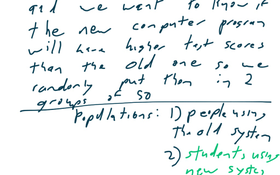 and we want to know if
the new computer program
will have higher test scores
than the old one so we
randomly put them in 2
groups of 50
Populations: 1) people using
the old system
2) students using
new system